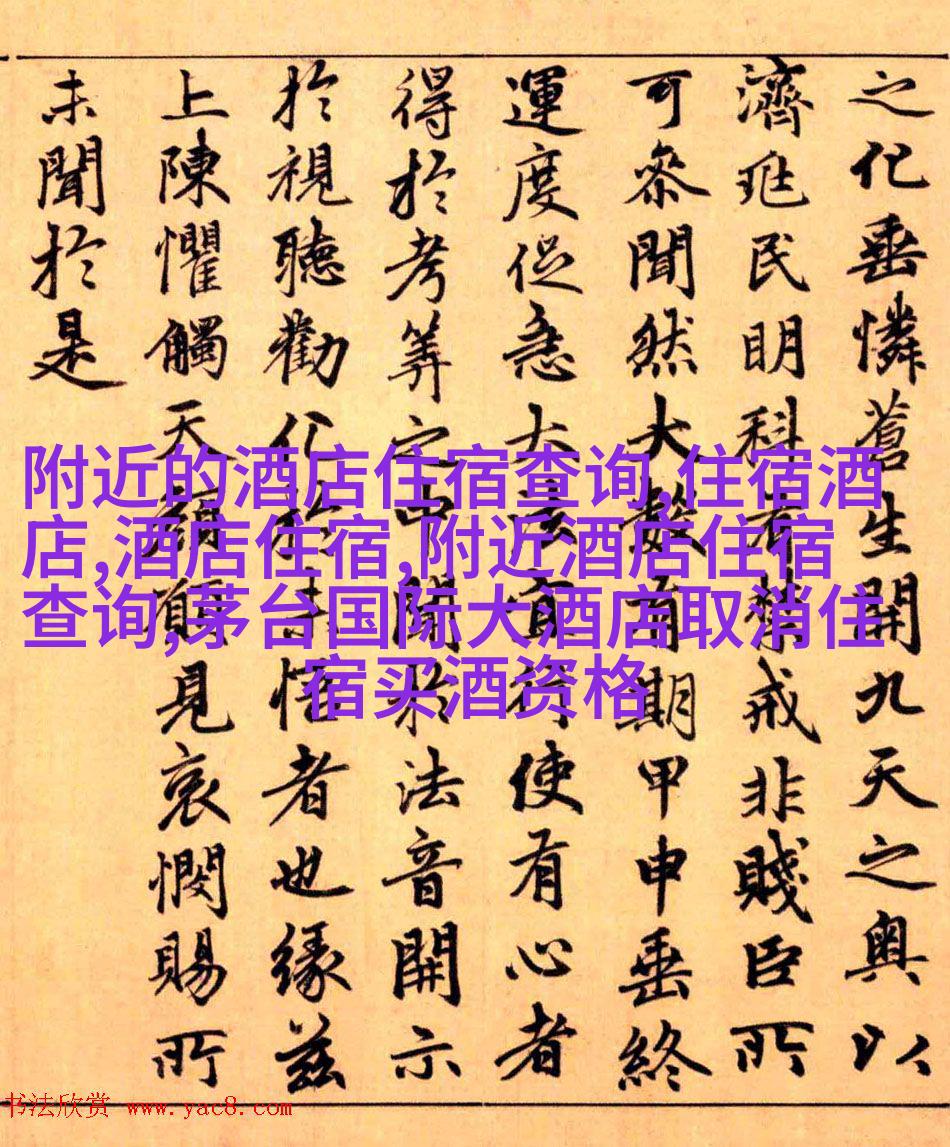 之化垂憐蒼生開九天之奧以
濟兆民明科有禁戒非賤臣所
可叅聞然大數有期甲申垂終
運度促急大宜行使有心者
得於考筭之中聞於法音開示
於視聽勸化於未悟者也緣茲
上陳懼觸天顏願見哀憫賜所
未聞於是
附近的酒店住宿查询,住宿酒
店,酒店住宿,附近酒店住宿
查询,茅台国际大酒店取消住
宿买酒资格
书法欣赏 www.yac8.com